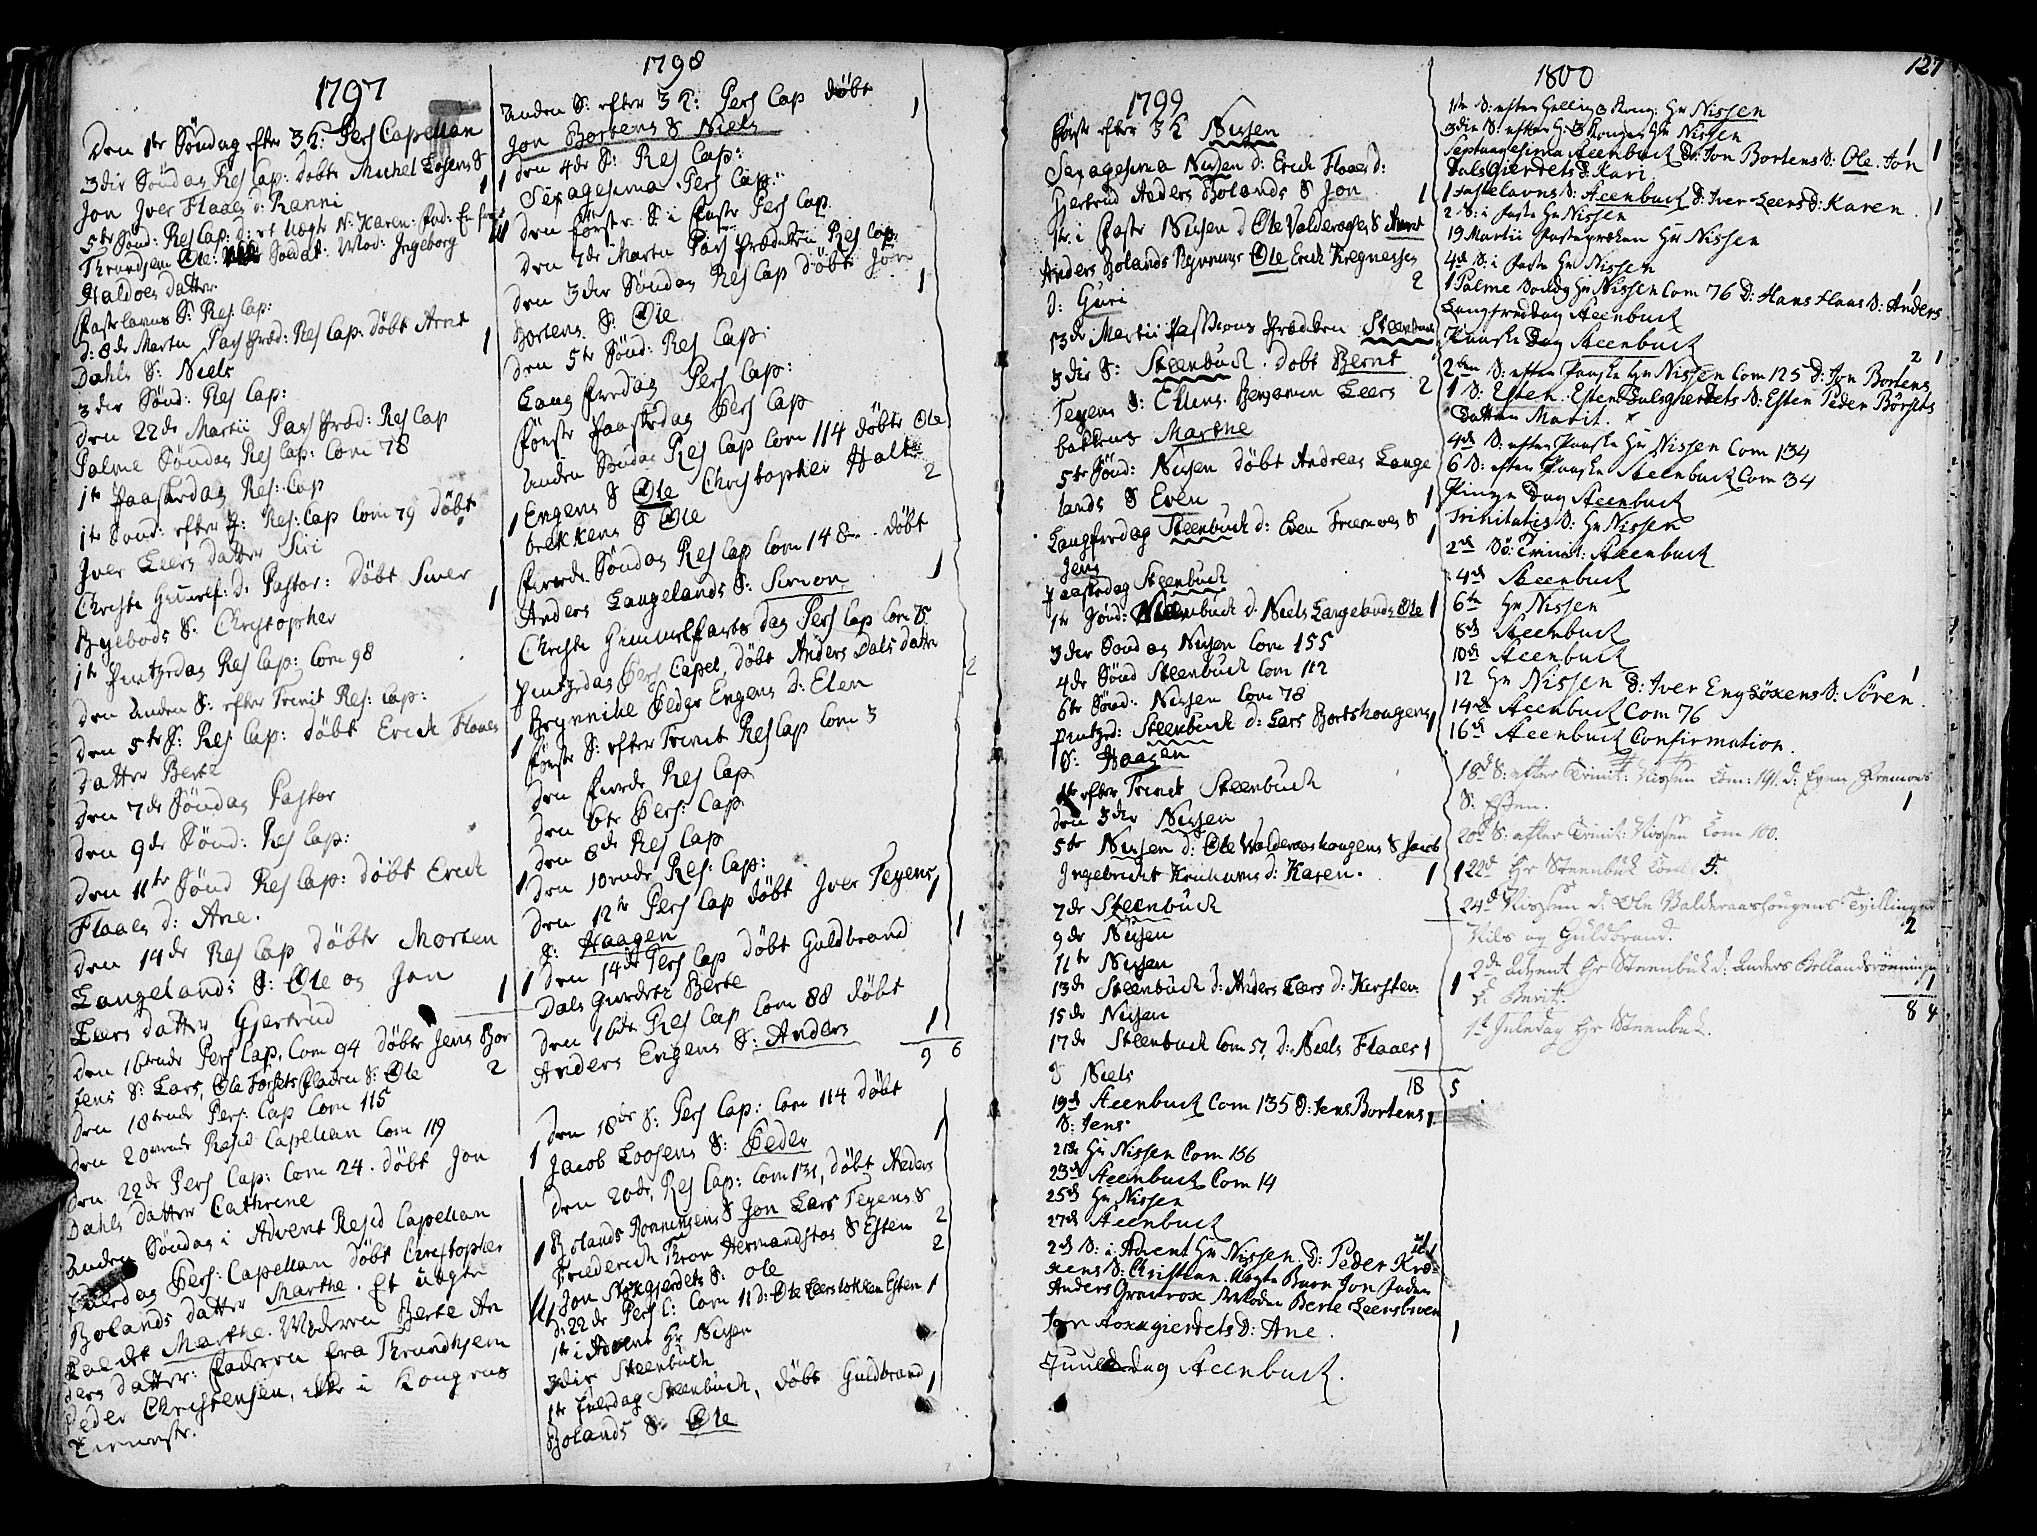 1797
Den 1te Søndag efter 3 K: Pers Capellan
3die Søndag Res Cap: døbte Michel Losens S
Jon Iver Flaaes d: Ranni 1
5te Sønd: Res Cap: d: et Uægte N: Karen: Fad:
Throndsen Ole: Soldat: Mod: Ingeborg
Haldoes datter
Fastelavns S: Res: Cap:
d: 8de Martii Pass Præd: Res Cap: døbt Arnt
Dahls S: Niels 1
3die Sønd: Res Cap:
den 22de Martii Pass Præd: Res Cap
Palme Søndag Res Cap: Com 78
1te Paaskedag Res: Cap
1te Sønd: efter P: Res: Cap Com 79 døbt
Iver Leers datter Siri
Christi Himelf: d: Pastor: døbt Siver
Byebods S: Christopher 1
1te Pintzedag Res Cap: Com 98
den Anden S: efter Trinit Res: Cap:
den 5te S: Res Cap: døbt Erick Flaaes
datter Berte
den 7de Søndag Pastor
den 9de Sønd: Res Cap:
den 11te Sønd Res Cap: døbt Erick
Flaaes d: Ane.
den 14de Res Cap døbte Morten
Langelands S: Ole og Jon
Leers datter Gjertrud 1
den 16tende Pers Cap, Com 94 døbte Jens Bor
tens S: Lars, Ole Forsets Pladsen S: Ole 2
den 18tende Pers: Cap Com 115
den 20vende Resid Capellan Com 119
den 22de Pers Cap: Com 24. døbt Jon
Dahls datter Cathrine
Anden Søndag i Advent Resid Capellan
Juledag Pers: Capellan døbt Christopher
Bolands datter Marthe. Et uægte
kaldet Marthe. Moderen Berte An
ders datter: Faderen fra Thrundhjem
Peder Christensen, ikke i Kongens
Tieneste.
1798
Anden S: efter 3 K: Pers Cap døbt 1
Jon Bortens S Niels
den 4de S: Res Cap:
Sexagesima Pers Cap:
den første S i Faste Pers Cap
Den 7de Martii Pass Prædiken Res Cap
den 3die Søndag Res Cap døbt Jon
Bortens S: Ole 1
den 5te Sønd: Res Cap:
Lang fredag Pers Cap:
første Paaskedag Pers Cap
Anden Søndag Res Cap Com 114 døbte Ole
Engens S Ole Christopher Halt
bekkens S Ole 2
fierde Søndag Res Cap Com 148 døbt
Anders Langelands S: Simon 1
Christi Himmelfarts dag Pers Cap Com 75
Pintzedag Pers Capel, døbt Anders Dals datter
Brynnilde Peder Engens d: Elen 2
første S: efter Trinit Res Cap Com 3
den fierde Res Cap
den 6te Pers: Cap
den 8de Res Cap
den 10ende Res: Cap:
den 12te Pers Cap døbt Iver Teyens
S: Haagen 1
den 14de Pers Cap døbt Guldbrand
Dals Gierdetz Berte 1
den 16de Res Cap Com 88 døbt
Anders Engens S: Anders 1
9 6
den 18de S: Pers Cap: Com 114 døbt
Jacob Loosens S: Peder 1
den 20de, Res Cap: Com 131, døbt Anders
Bolands Rønningens S Jon Lars Teyens S 2
Friederich Tron Hermandstas S Esten 2
Jon Stokgierdets S: Ole
d: 22de Pers C: Com 11 d: Ole Leersløkken Esten 1
1te i Advent Hr Nissen
3die Steenbuch
1te Juledag Steenbuch, døbt Guldbrand 1
Bolands S: Ole
1799
Første efter 3 K Nissen
Sexagesima Nissen d: Erick Flaaes d:
Gjertrud Anders Bolands S Jon 1
1te i Faste Nissen d Ole Valderaases S Arnt
Anders Bolands Rønnings Ole Erick Kregnessen
d: Guri 2
13de Martii Passions Prædiken Steenbuch
3die S: Steenbuch. døbt Bernt
Teyens S: Ellens. Benjamin Leers 2
bakkens Marthe
5te Sønd: Nissen døbt Andreas Lange
lands S Even 1
Langfredag Steenbuch d: Even Fremoes S 1
Jens
Paaskedag Steenbuch
1te Sønd: Steenbuch d: Niels Langelands Ole 1
3die Søndag Nissen Com 155
4de Sønd Steenbuch Com 112
6te Sønd: Nissen Com 78
Pintzed: Steenbuch d: Lars Bortshougens 1
S: Haagen
1te efter Trinit Steenbuch
den 3die Nissen
5te Nissen d: Ole Walderashougens S Jacob
Ingebricht Kruhums d: Karen. 1 1
7de Steenbuch
9de Nissen
11te Nissen
13de Steenbuch d: Anders Leers d: Kirsten 1
15de Nissen
17de Steenbuch Com 57, d: Niels Flaaes 1
S Niels 18 5
19de Steenbuck Com 135 D: Jens Bortens 1
S: Jens
21de Hr Nissen Com 156
23de Steenbuck Com 14
25de Hr Nissen
27de Steenbuck
2den S: i Advent Hr Nissen. D: Peder Krø
xens S: Christian. Uægte Barn Jon Faden
Anders Granrox Moden Berte Leersbroen
Jon Stoxgierdets D: Ane. 1
Juuledag Steenbuck.
127
1800
1te S: efter Hellig 3 Kong: Hr Nissen
3die S: efter H: 3 Konger Hr Nissen
Septuagesima Steenbuck D: Jon Bortens S: Ole. Jon 1 1
Dalsgierdets D: Kari
1 Fastelavns S: Steenbuck D: Iver Leers D: Karen. 1
2. S: i Faste Hr Nissen
19 Martii Fastepræken Hr Nissen
4de S: i Faste Hr Nissen
1 Palme Søndg Hr Nissen Com 76 D: Hans Flaas S: Anders 1
Langfredag Steenbuck
Paaske Dag Steenbuck
2den S: efter Paaske Hr Nissen Com 125 D: Jon Bortens 2 1
1 S: Esten. Esten Dalsgierdets S: Esten Peder Børsets
Datter Marit.
4de S: efter Paaske Hr Nissen Com 134
6 S: efter Paaske Steenbuck Com 34
Pinze Dag Steenbuck
Trinitatis S: Hr Nissen
2den Sø: Trinit: Steenbuck
4de Steenbuck
6te Hr Nissen
8de Steenbuck
10de Steenbuck
12 Hr Nissen D: Iver Engsøxens S: Sören. 1
14de Steenbuck Com 76
16de Steenbuck Confirmation.
18d S: efter Trinit: Nissen Com: 141. d: Even Fremoes
S: Esten. 1
20d S: efter Trinit: Nissen Com 100.
1 22d Hr Steenbuk Com 5.
24d Nissen d: Ole Valderaashougens Tvillinger
Nils og Guldbrand. 2
2den Advent Hr Steenbuk d: Anders Bollandsrönningen
d: Berit. 1 1
8 4
1st Juledag Hr Steenbuk.